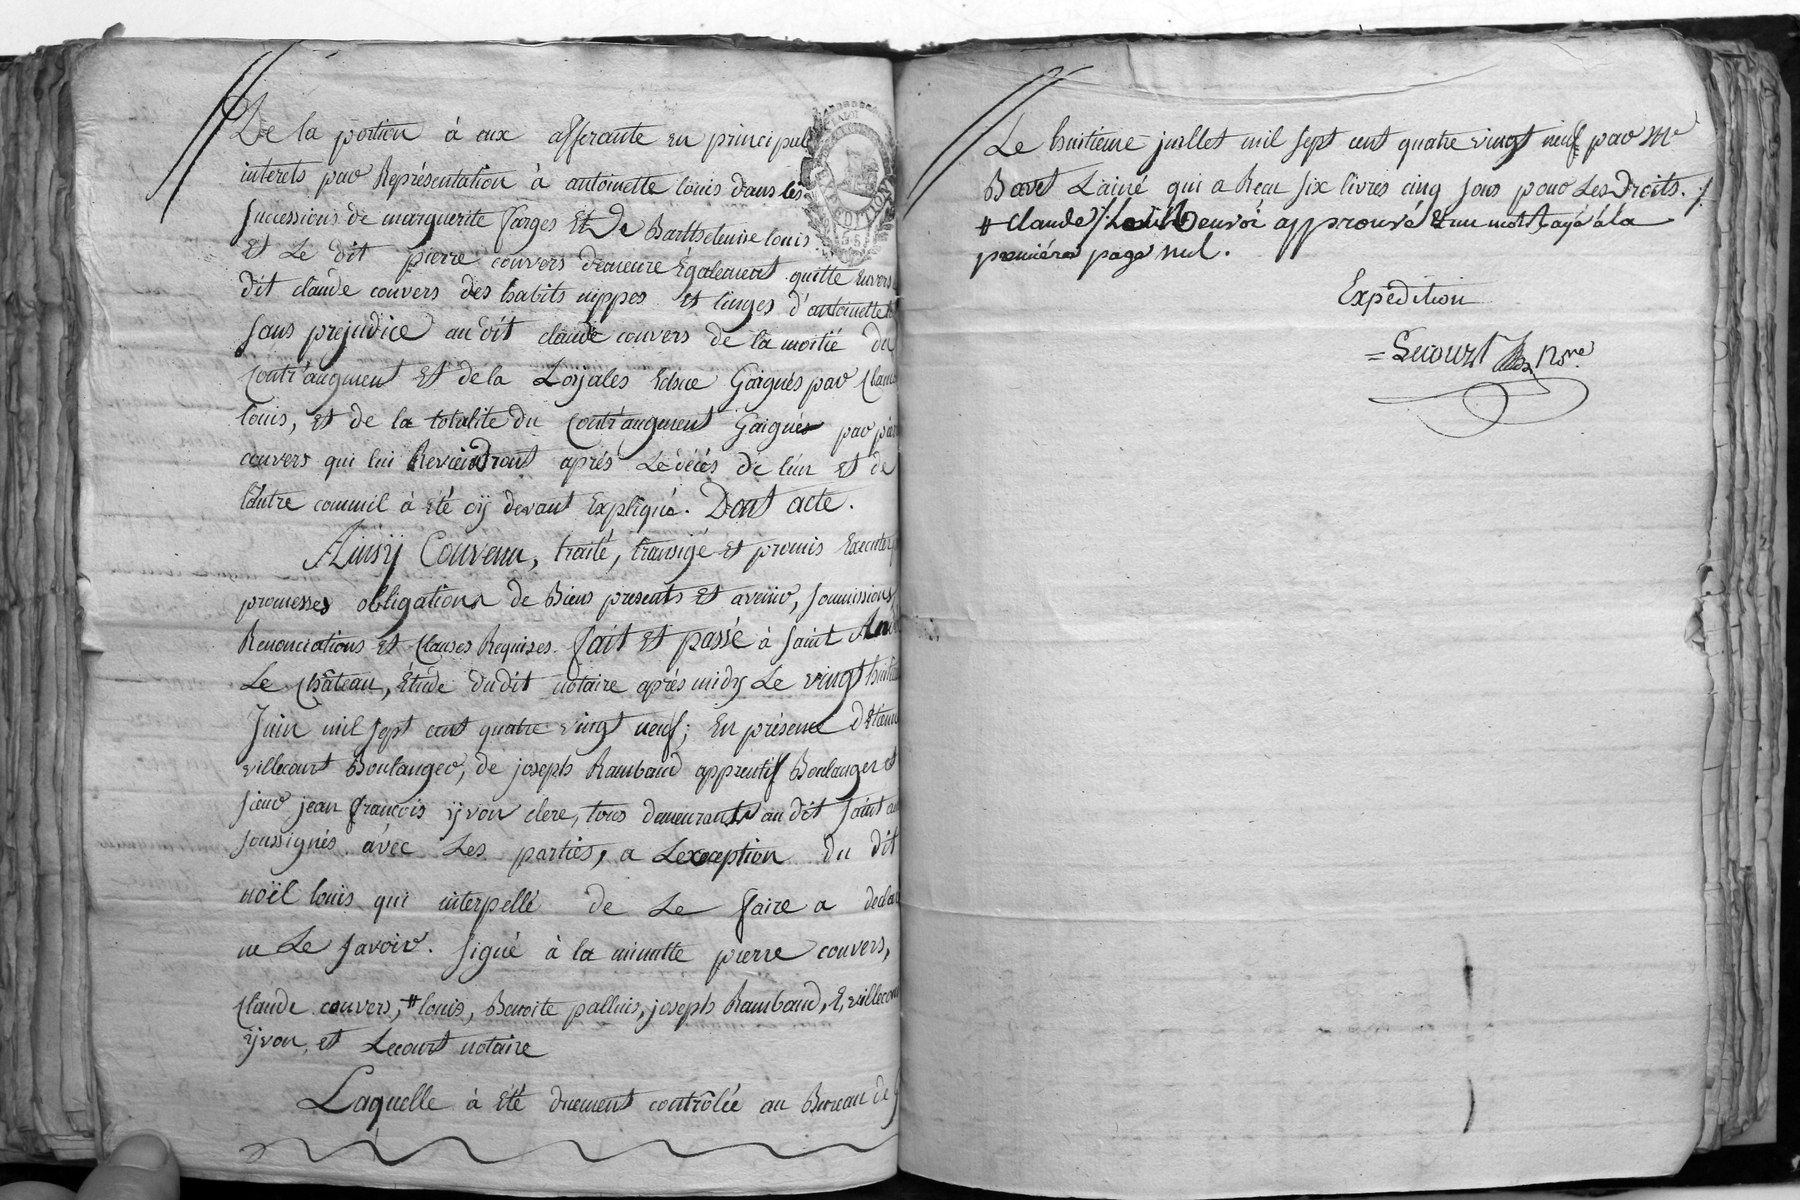 De la portion à eux afferante en principal
interets par Représentation à antoinette louis dans les
Successions de marguerite farges Et De Barthelemie louis.
Et Le dit pierre couvers demeure Également quitte Envers
dit claude couvers des habits nippes et linges d'antoinette
sans prejudice au dit claude couvers de la moitié du
Contr'augment Et de la Gaignés par
louis, et de la totalité du Contr'augment Gaignés par
couvers qui lui Reviendront aprés Le décés de l'un et de
l'autre comme il à été cy devant Expliqué. Dont acte.
Ainsÿ Convenu, traité, transigé et promis Executer
promesses obligations de Biens presents Et avenir, soumissions
Renonciations et Clauses Requises. fait Et passé à Saint
Le Château, Étude dudit notaire aprés midy Le vingt
Juin mil sept cent quatre vingt neuf; En présence
villecourt Boulanger, de joseph Rambaud apprentif Boulanger et
sieur jean françois ÿvon clerc, tous demeurants au dit Saint
soussignés avéc Les parties, a Lexception du dit
noël louis qui interpellé de Le faire a
ne Le savoir. signé à la minutte pierre couvers,
Claude couvers, # louis, Benoite palluis, joseph Rambaud, E,
ÿvon, et Lecourt notaire
Laquelle à été duement contrôlée au Bureau de
EXPEDITION
Le huitieme juillet mil sept cent quatre vingt neuf par Mr
L'ainé qui a Recu six livres cinq sous pour Les Droits. ;/
# Claude / renvoi approuvé Et un mot Rayé à la
premiére page nul.
Expédition
= Lecourt Nore.